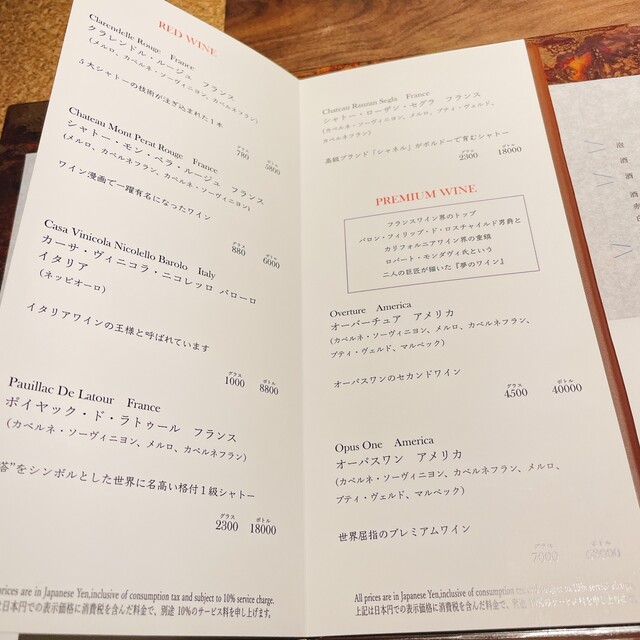 RED WINE
Clarendelle Rouge France
クラレンドル・ルージュ フランス
(メルロ、カベルネ・ソーヴィニヨン、カベルネフラン)
5大シャトーの技術が注ぎ込まれた1本
グラス ボトル
780 5800
Chateau Mont Perat Rouge France
シャトー・モン・ペラ・ルージュ フランス
(メルロ、カベルネフラン、カベルネ・ソーヴィニヨン)
ワイン漫画で一躍有名になったワイン
グラス ボトル
880 6000
Casa Vinicola Nicolello Barolo Italy
カーサ・ヴィニコラ・ニコレッロ バローロ
イタリア
(ネッビオーロ)
イタリアワインの王様と呼ばれています
グラス ボトル
1000 8800
Pauillac De Latour France
ポイヤック・ド・ラトゥール フランス
(カベルネ・ソーヴィニヨン、メルロ、カベルネフラン)
塔”をシンボルとした世界に名高い格付1級シャトー
グラス ボトル
2300 18000
prices are in Japanese Yen,inclusive of consumption tax and subject to 10% service charge.
は日本円での表示価格に消費税を含んだ料金で、別途 10%のサービス料を申し上げます。
Chateau Rauzan Segla France
シャトー・ローザン・セグラ フランス
(カベルネ・ソーヴィニヨン、メルロ、プティ・ヴェルド、
カベルネフラン)
高級ブランド「シャネル」がボルドーで育むシャトー
グラス ボトル
2300 18000
PREMIUM WINE
フランスワイン界のトップ
バロン・フィリップ・ド・ロスチャイルド男爵と
カリフォルニアワイン界の重鎮
ロバート・モンダヴィ氏という
二人の巨匠が描いた『夢のワイン』
Overture America
オーバーチュア アメリカ
(カベルネ・ソーヴィニヨン、メルロ、カベルネフラン、
プティ・ヴェルド、マルベック)
オーパスワンのセカンドワイン
グラス ボトル
4500 40000
Opus One America
オーパスワン アメリカ
(カベルネ・ソーヴィニヨン、カベルネフラン、メルロ、
プティ・ヴェルド、マルベック)
世界屈指のプレミアムワイン
グラス ボトル
7000
All prices are in Japanese Yen,inclusive of consumption tax
上記は日本円での表示価格に消費税を含んだ料金で、別途
泡
酒
酒
赤
白